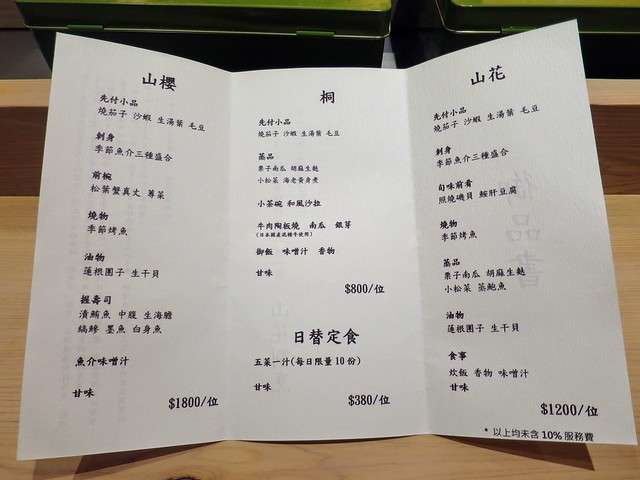 山櫻
先付小品
燒茄子 沙蝦 生湯葉 毛豆
刺身
季節魚介三種盛合
前椀
松葉蟹真丈 蓴菜
燒物
季節烤魚
油物
蓮根團子 生干貝
握壽司
漬鮪魚 中腹 生海膽
縞鰺 墨魚 白身魚
魚介味噌汁
甘味
$1800/位
桐
先付小品
燒茄子 沙蝦 生湯葉 毛豆
蒸品
栗子南瓜 胡麻生麩
小松菜 海老黃身煮
小茶碗 和風沙拉
牛肉陶板燒 南瓜 銀芽
(日本國產流種牛使用)
御飯 味噌汁 香物
甘味
$800/位
日替定食
五菜一汁(每日限量10份)
甘味
$380/位
山花
先付小品
燒茄子 沙蝦 生湯葉 毛豆
刺身
季節魚介三種盛合
旬味前肴
照燒磯貝 鮟肝豆腐
燒物
季節烤魚
蒸品
栗子南瓜 胡麻生麩
小松菜 蒸鮑魚
油物
蓮根團子 生干貝
食事
炊飯 香物 味噌汁
甘味
$1200/位
* 以上均未含10%服務費